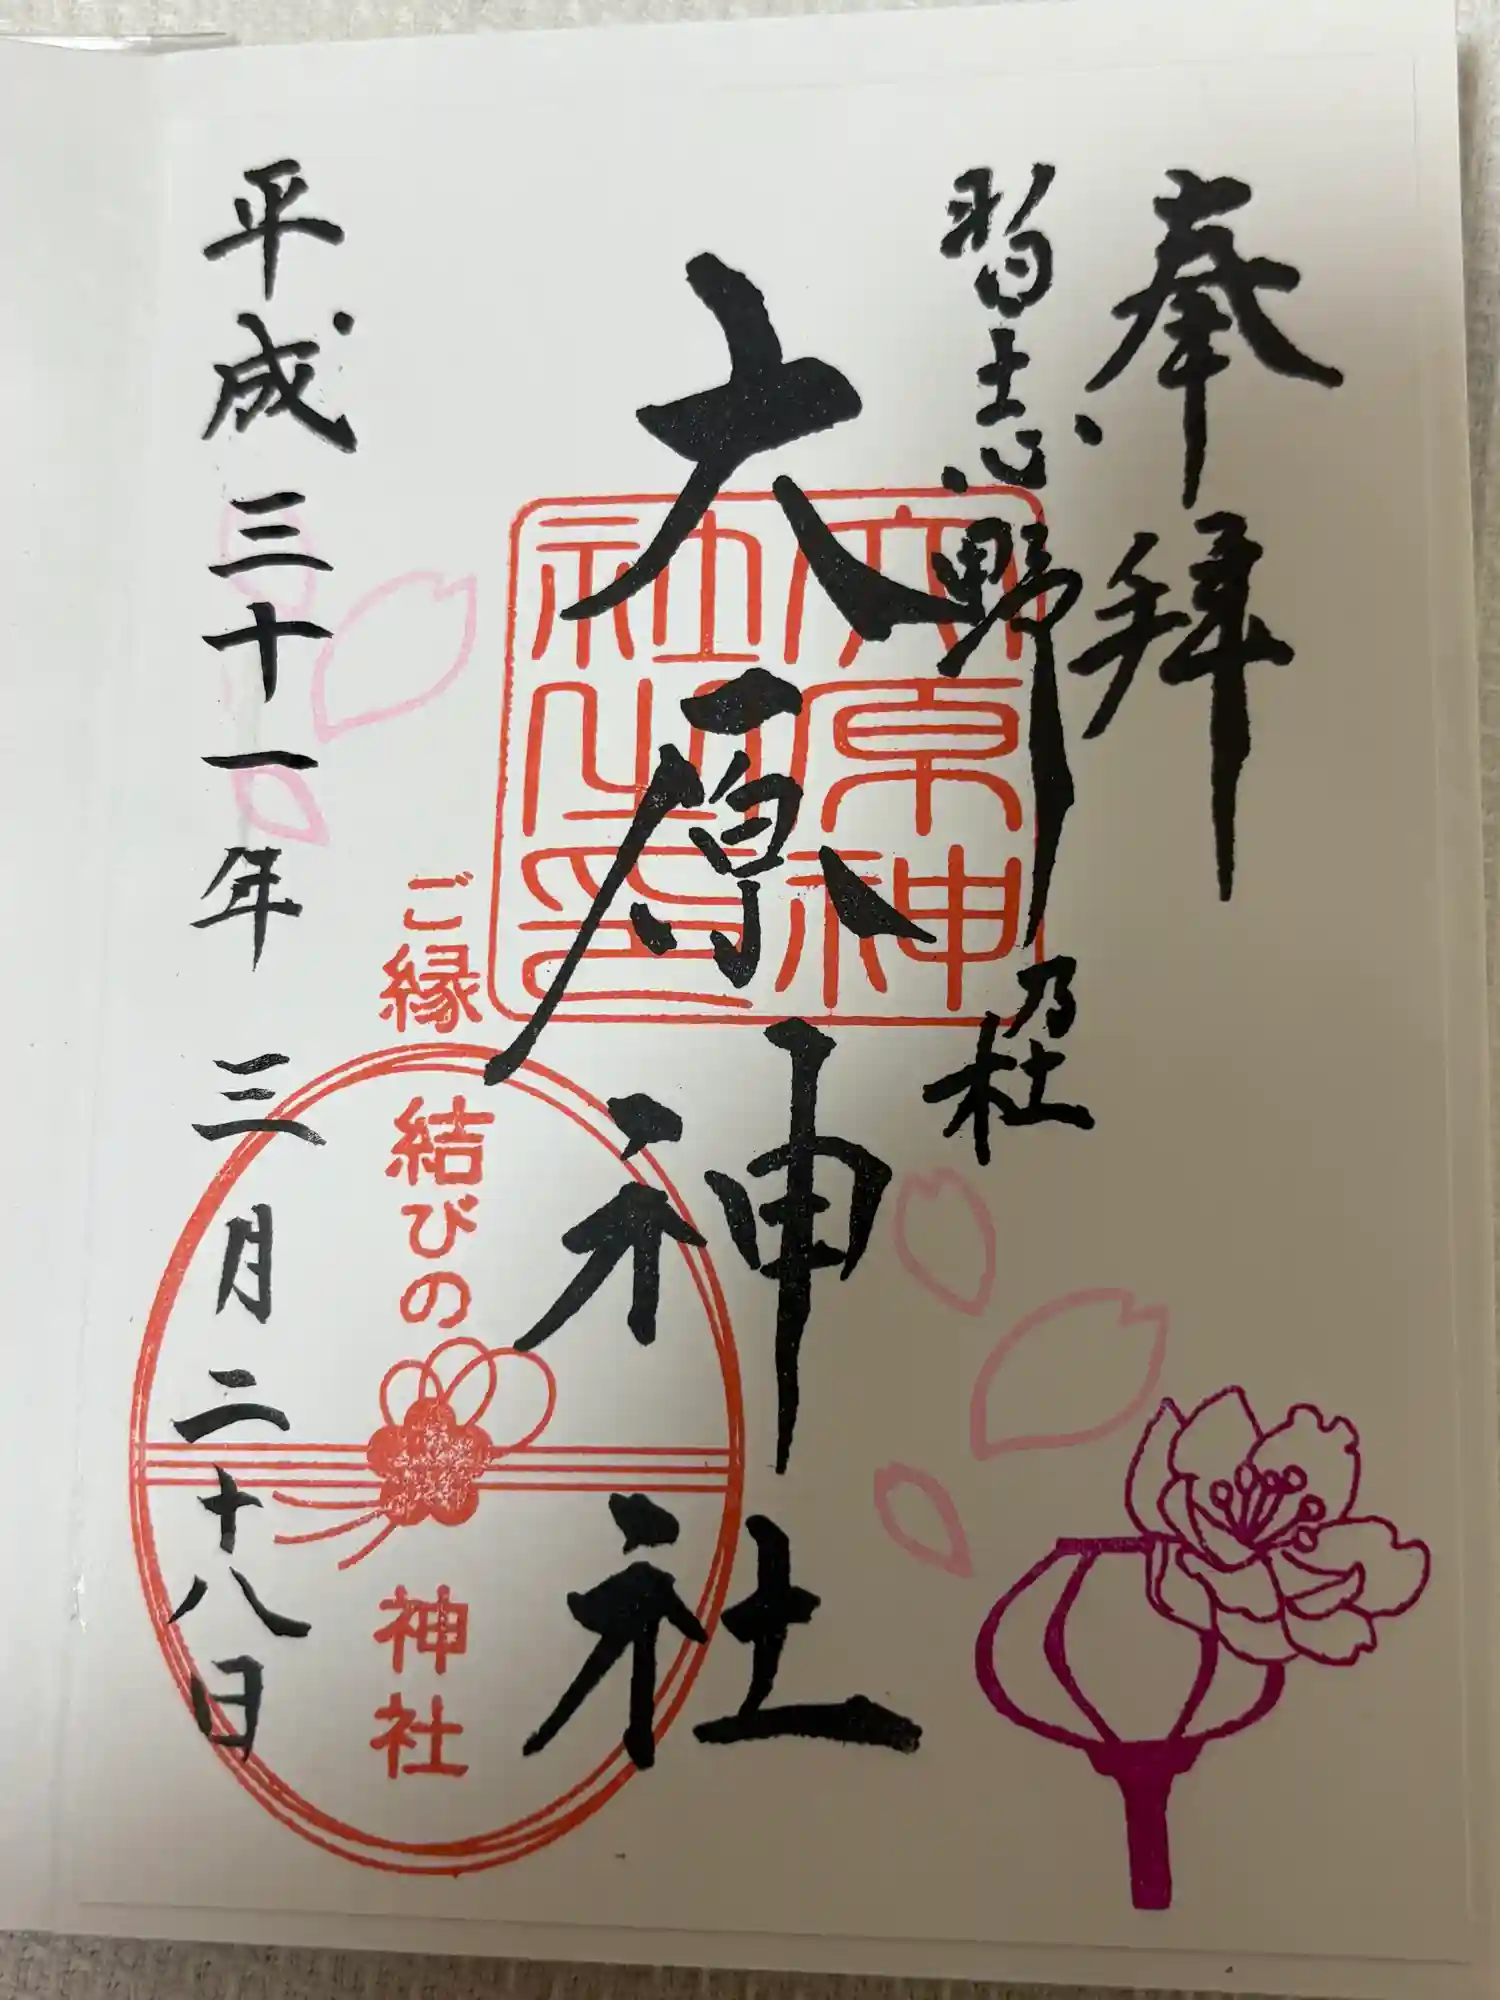 奉拝
習志野乃杜
大原神社
大原神
社之印
ご縁
結びの
神社
平成三十一年三月二十八日